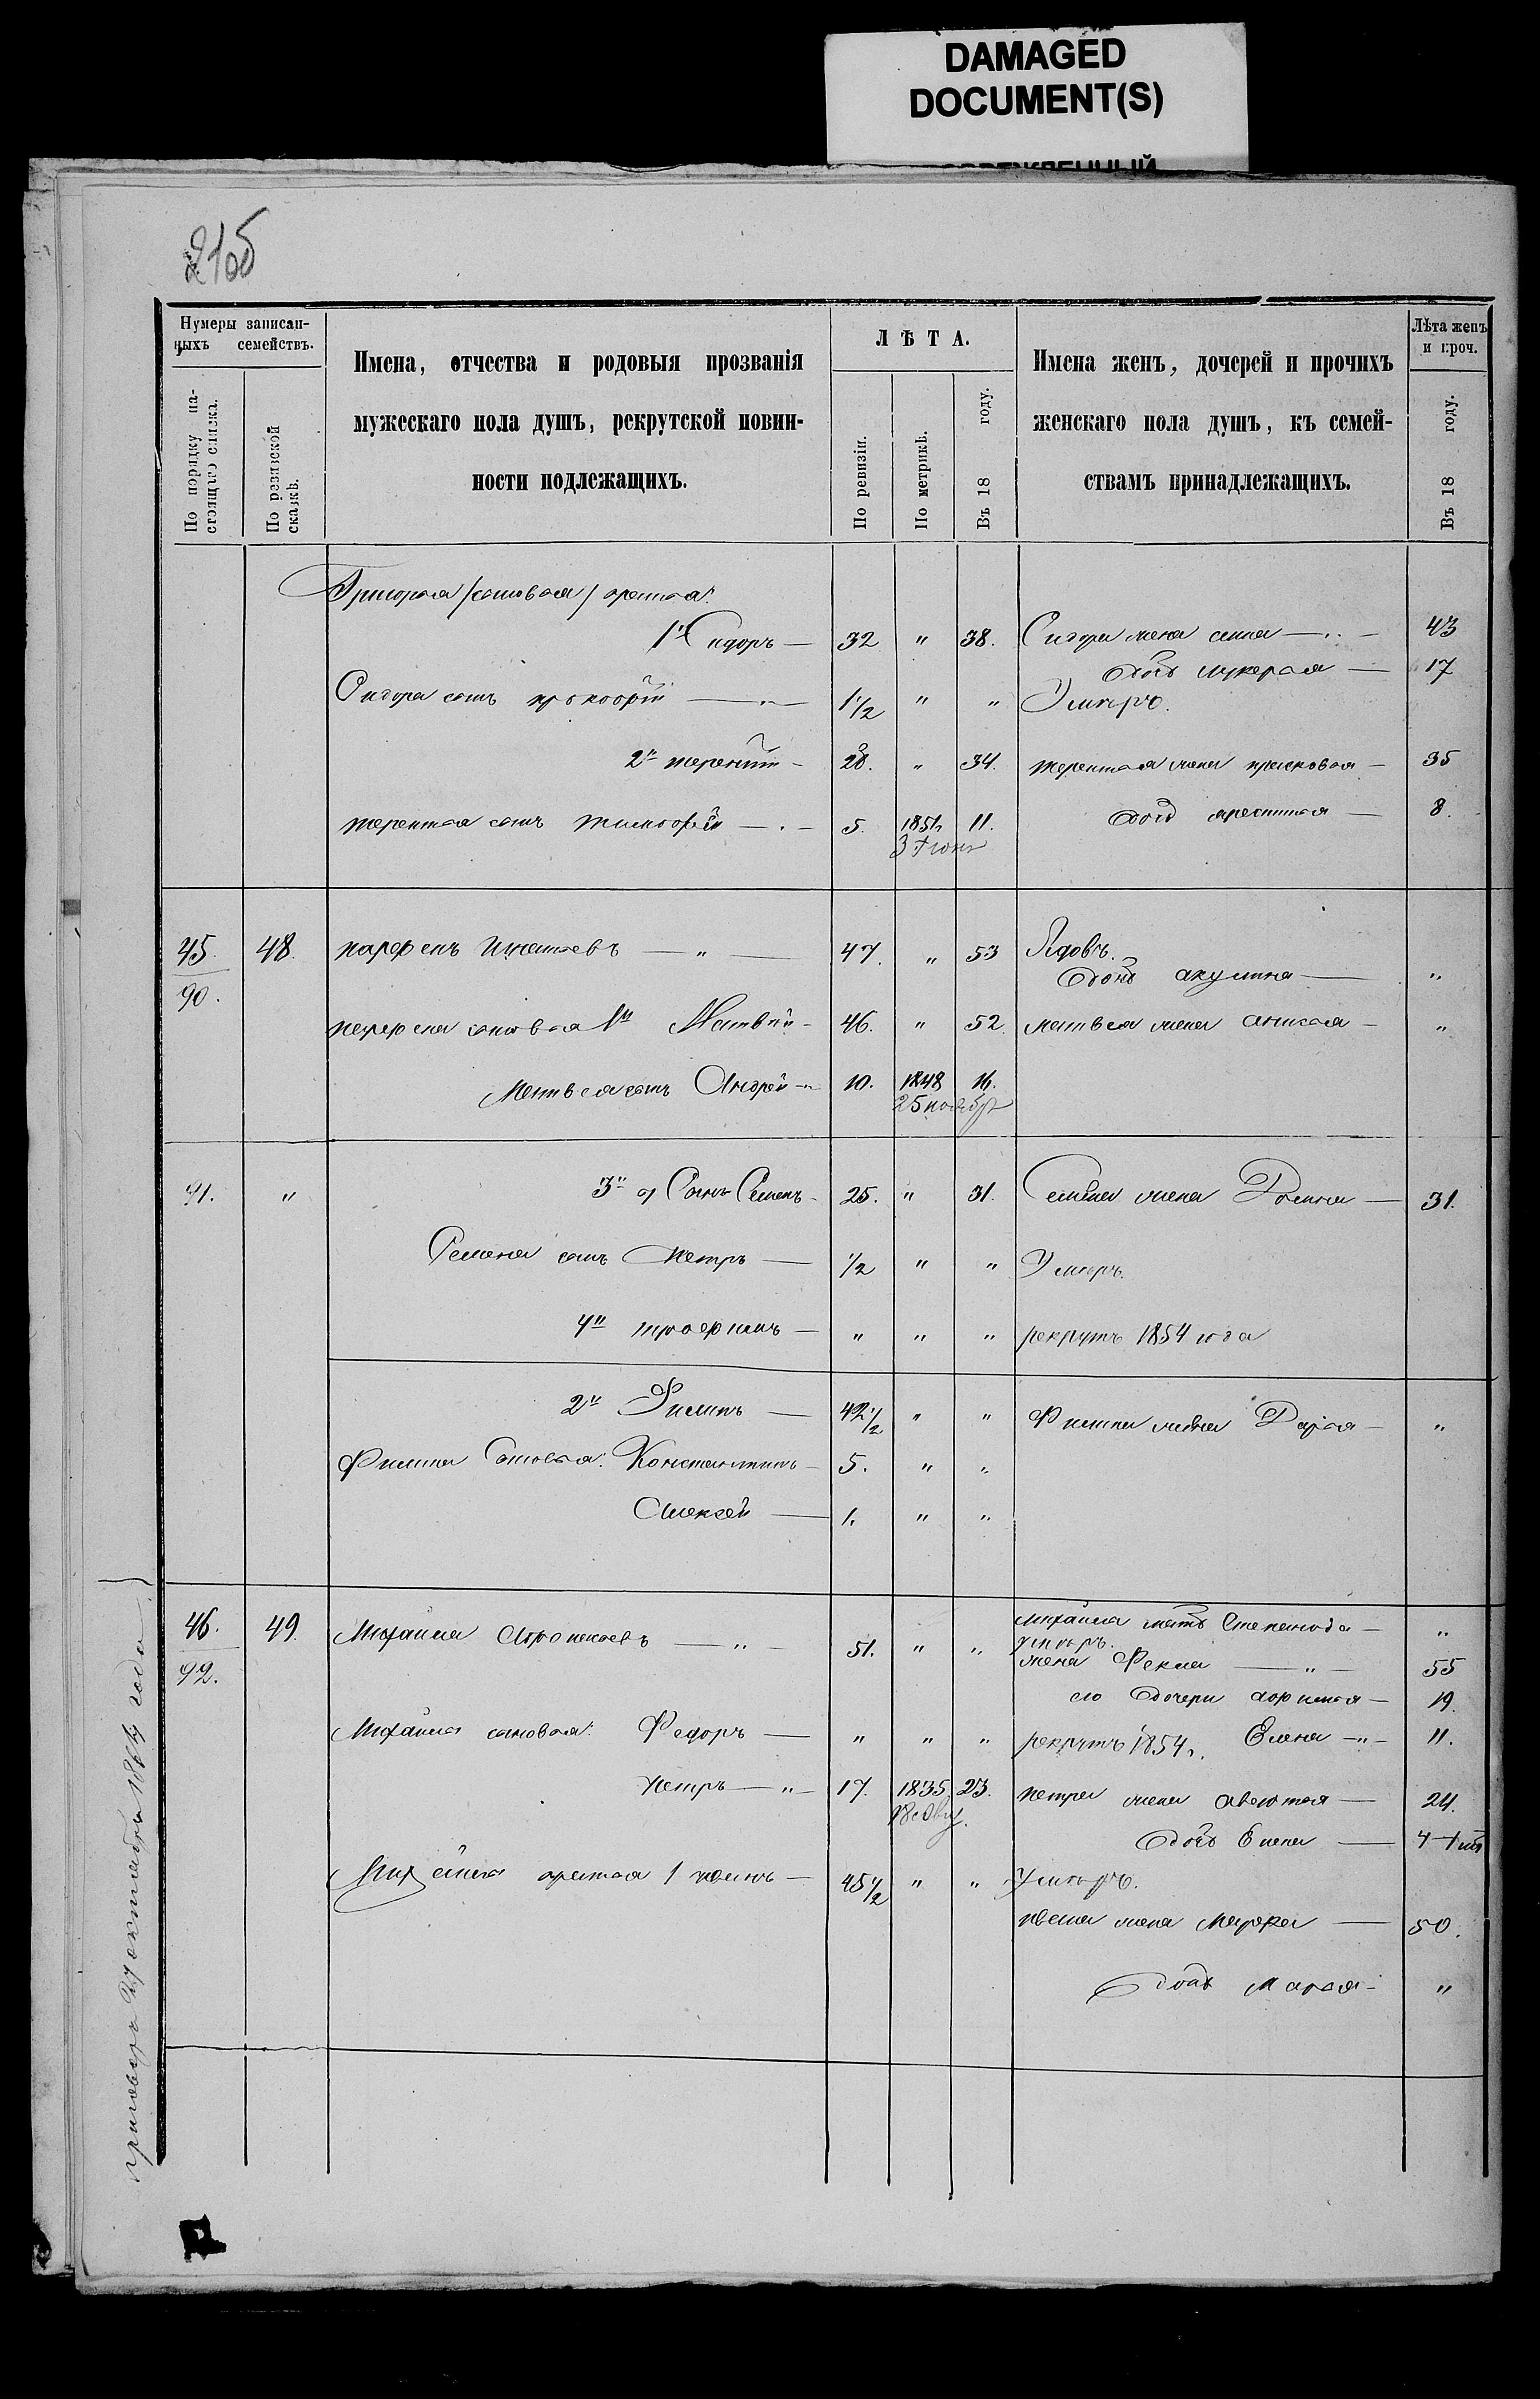 DAMAGED
DOCUMENT(S)
216
Нумеры записан-
ныхъ семействъ.
По порядку на-
стоящаго списка.
По ревизской
сказкѣ.
Имена, отчества и родовыя прозванія
мужескаго пола душъ, рекрутской повин-
ности подлежащихъ.
ЛѢТА.
По ревизіи.
По метрикѣ.
Въ 18 году.
Имена женъ, дочерей и прочихъ
женскаго пола душъ, къ семей-
ствамъ принадлежащихъ.
Лѣта женъ
и проч.
Въ 18 году.
Григорья /сыновья/
1й Сидоръ — 32 " 38. Сидора жена — 43
дочь лукерья — 17
Сидора сынъ прокофій — 1 1/2 " " Умеръ.
2й терентій — 28. " 34. терентья жена прасковья — 35
терентья сынъ тимофей — 5. 1851 11. дочь — 8.
45. 48. парфенъ Игнатьевъ — " — 47. " 53 Вдовъ.
90. дочь акулина — "
парфена сыновья 1й Матвѣй — 46. " 52. матвея жена — "
Матвея сынъ Андрей — 10. 1848 16.
25 ноября
91. " 3й Сынъ Семенъ — 25. " 31. Семена жена — 31.
Семена сынъ Петръ — 1/2 " " Умеръ.
4й трофимъ — " " " рекрутъ 1854 года
2й Филипъ — 42 1/2 " " Филипа жена Дарья — "
Филипа Сыновья: Константинъ — 5. " "
Алексей — 1. " "
46. 49. Михайла — " — 51. " " михайла мать Степанида — "
умеръ.
92. жена Фекла — " — 55
его дочери — 19.
Михайла сыновья: Федоръ — " " " рекрутъ 1854 г. Елена — " — 11.
Петръ — " — 17. 1835 23. петра жена авдотья — 24.
дочь Елена — 4
Михайла 45 1/2 " " Умеръ.
жена Марфа — 50.
дочь Марья — "
приговоръ 27 октября года